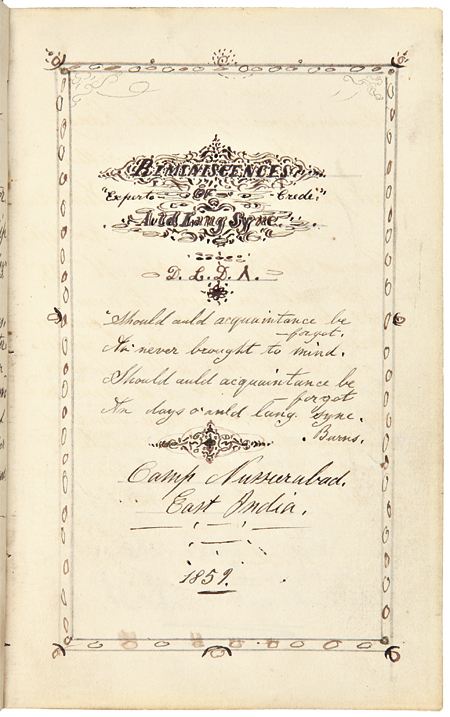 REMINISCENCES
"Experto OF Crede,"
Auld Lang Syne.
D. L. D. A.
"Should auld acquaintance be
—forgot.
An' never brought to mind.
Should auld acquaintance be
—forgot
An days o' auld lang syne.
. Burns.
Camp Nusseerabad.
East India.
1859.